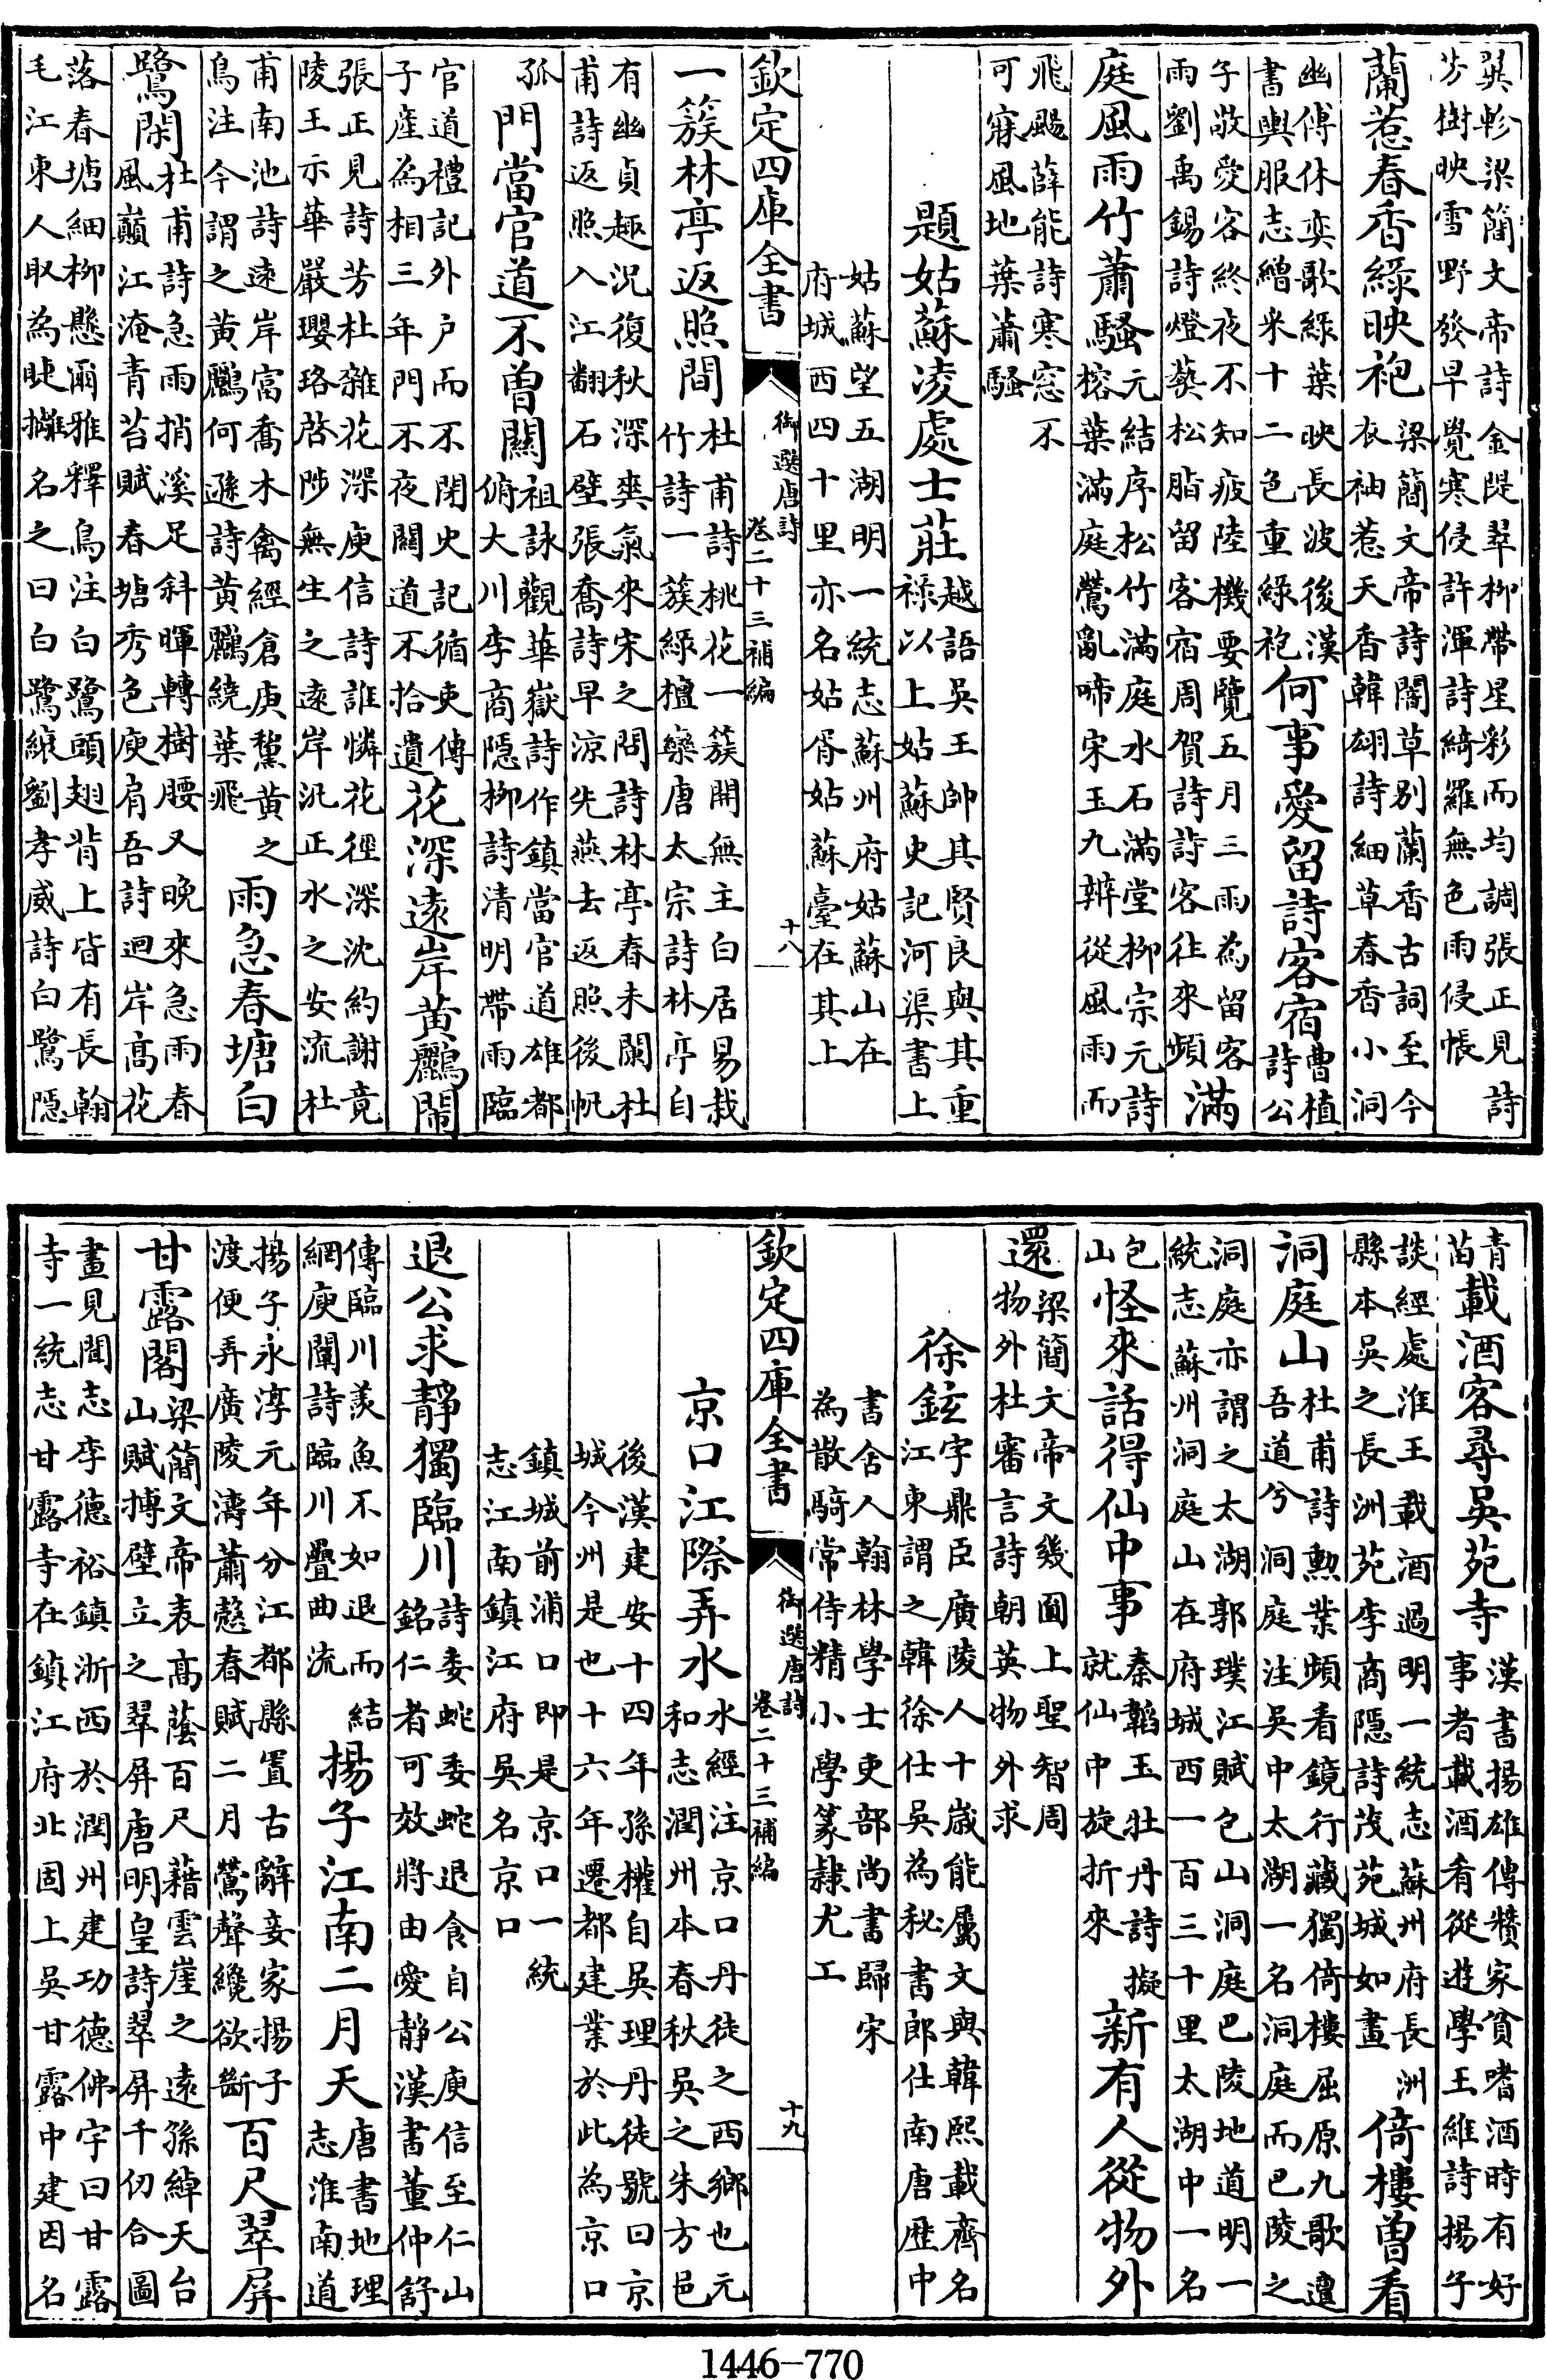 巽軫梁簡文帝詩金隄翠柳帶星彩而均調張正見詩
芳樹映雪野發早覺寒侵許渾詩綺羅無色雨侵帳
蘭惹春香綠映袍
梁簡文帝詩闇草別蘭香古詞至今
衣袖惹天香韓翃詩細草春香小洞
幽傅休奕歌綠葉映長波後漢
書輿服志繒采十二色重綠袍
何事愛留詩客宿
曹植
詩公
子敬愛客終夜不知疲陸機要覽五月三雨為留客
雨劉禹錫詩燈爇松脂留客宿周賀詩詩客往來頻
滿
庭風雨竹蕭騷
元結序松竹滿庭水石滿堂柳宗元詩
榕葉滿庭鶯亂啼宋玉九辨從風雨而
飛颺薛能詩寒窓不
可寐風地葉蕭騷
題姑蘇凌處士莊
越語吳王帥其賢良與其重
祿以上姑蘇史記河渠書上
姑蘇望五湖明一統志蘇州府姑蘇山在
府城西四十里亦名姑胥姑蘇臺在其上
欽定四庫全書
御選唐詩
卷二十三補編
十八
一簇林亭返照間
杜甫詩桃花一簇開無主白居易栽
竹詩一簇綠檀欒唐太宗詩林亭自
有幽貞趣況復秋深爽氣來宋之問詩林亭春未闌杜
甫詩返照入江翻石壁張喬詩早涼先燕去返照後帆
孤
門當官道不曾關
祖詠觀華嶽詩作鎮當官道雄都
俯大川李商隱柳詩清明帶雨臨
官道禮記外户而不閉史記循吏傳
子產為相三年門不夜關道不拾遺
花深遠岸黄鸝閙
張正見詩芳杜雜花深庾信詩誰憐花徑深沈約謝竟
陵王示華嚴瓔珞啓陟無生之遠岸汎正水之安流杜
甫南池詩遠岸富喬木禽經倉庚黧黄之
鳥注今謂之黄鸝何遜詩黄鸝繞葉飛
雨急春塘白
鷺閑
杜甫詩急雨捎溪足斜暉轉樹腰又晚來急雨春
風巔江淹青苔賦春塘秀色庾肩吾詩迴岸高花
落春塘細柳懸爾雅釋鳥注白鷺頭翅背上皆有長翰
毛江東人取為睫攡名之曰白鷺縗劉孝威詩白鷺隱
青
苗
載酒客尋吳苑寺
漢書揚雄傳贊家貧嗜酒時有好
事者載酒肴從遊學王維詩揚子
談經處淮王載酒過明一統志蘇州府長洲
縣本吳之長洲苑李商隱詩茂苑城如畫
倚樓曾看
洞庭山
杜甫詩勲業頻看鏡行藏獨倚樓屈原九歌邅
吾道兮洞庭注吳中太湖一名洞庭而巴陵之
洞庭亦謂之太湖郭璞江賦包山洞庭巴陵地道明一
統志蘇州洞庭山在府城西一百三十里太湖中一名
包
山
怪來話得仙中事
秦韜玉牡丹詩擬
就仙中旋折來
新有人從物外
還
梁簡文帝文幾圓上聖智周
物外杜審言詩朝英物外求
徐鉉
字鼎臣廣陵人十歲能屬文與韓熙載齊名
江東謂之韓徐仕吳為秘書郎仕南唐歷中
書舍人翰林學士吏部尚書歸宋
為散騎常侍精小學篆隸尤工
欽定四庫全書
御選唐詩
卷二十三補編
十九
京口江際弄水
水經注京口丹徒之西鄉也元
和志潤州本春秋吳之朱方邑
後漢建安十四年孫權自吳理丹徒號曰京
城今州是也十六年遷都建業於此為京口
鎮城前浦口即是京口一統
志江南鎮江府吳名京口
退公求靜獨臨川
詩委蛇委蛇退食自公庾信至仁山
銘仁者可效將由愛靜漢書董仲舒
傳臨川羨魚不如退而結
網庾闡詩臨川疊曲流
揚子江南二月天
唐書地理
志淮南道
揚子永淳元年分江都縣置古辭妾家揚子
渡便弄廣陵濤蕭慤春賦二月鶯聲纔欲斷
百尺翠屏
甘露閣
梁簡文帝表高蔭百尺藉雲崖之遠孫綽天台
山賦摶壁立之翠屏唐明皇詩翠屏千仞合圖
畫見聞志李德裕鎮浙西於潤州建功德佛宇曰甘露
寺一統志甘露寺在鎮江府北固上吳甘露中建因名
1446-770